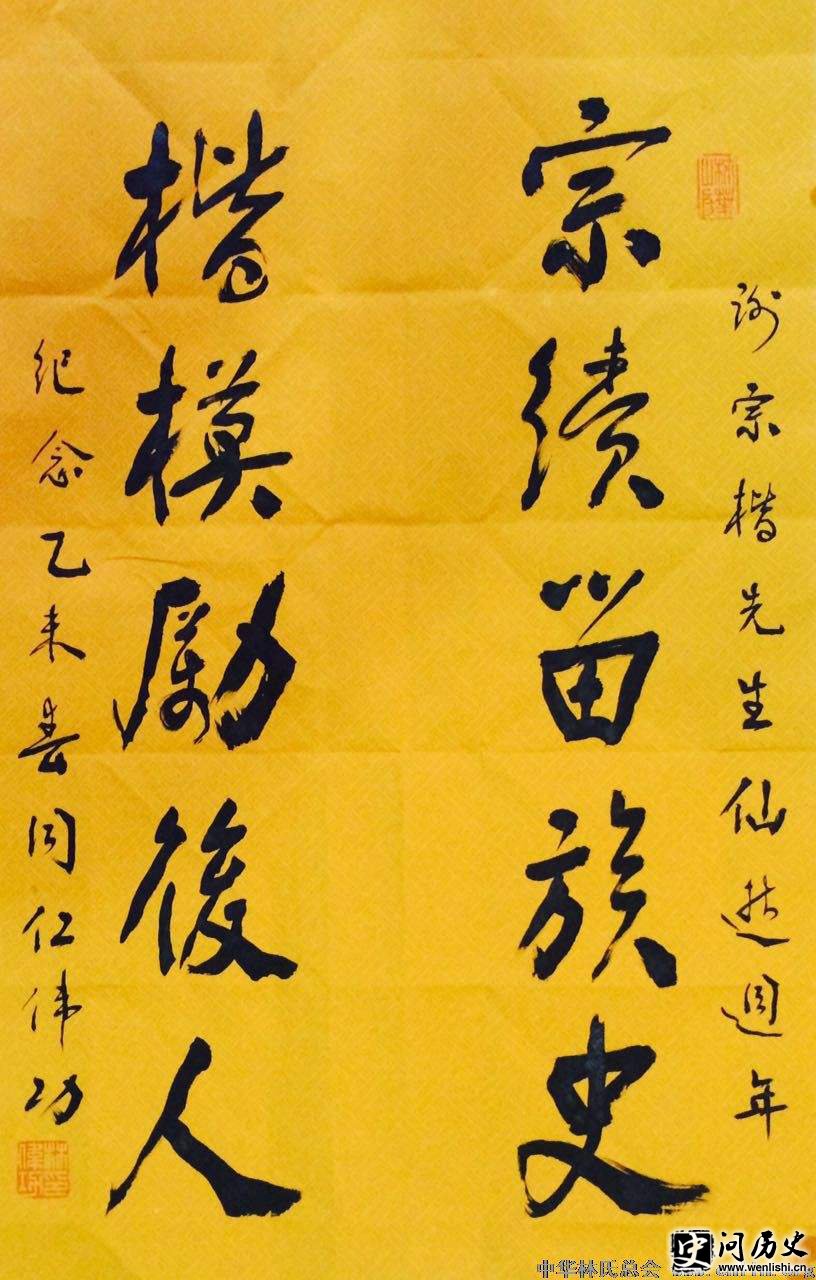 谢宗楷先生仙逝週年
宗續留族史
楷模勵後人
纪念乙未春同仁伟功
中华林氏总会
问历史
www.wenlishi.cn